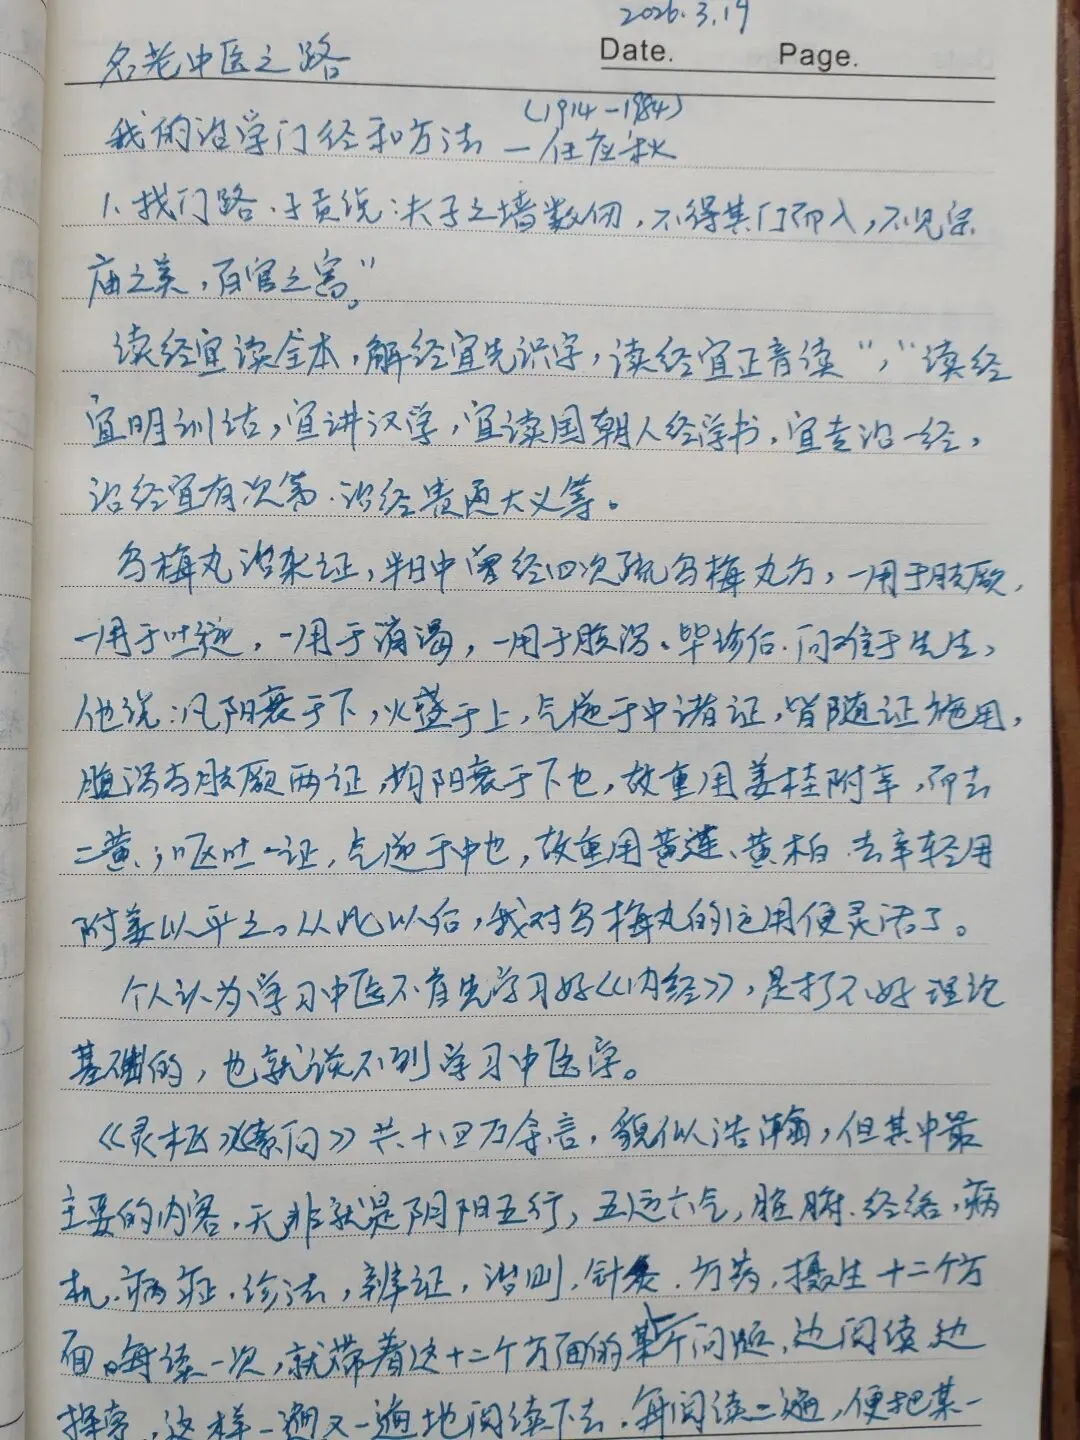 2026.3.19
Date. Page.
名老中医之路
(1914-1984)
我的治学门径和方法 — 任应秋
1、找门路.子贡说:夫子之墙数仞,不得其门而入,不见宗
庙之美,百官之富。"
读经宜读全本,解经宜先识字,读经宜正音读","读经
宜明训诂,宜讲汉学,宜读国朝人经学书,宜专治一经,
治经宜有次第.治经贵通大义等。
乌梅丸治杂证,半日中曾经四次疏乌梅丸方,一用于肢厥,
一用于吐逆,一用于消渴,一用于腹泻。毕诊后.问难于先生,
他说:凡阳衰于下,火盛于上,气逆于中诸证,皆随证施用,
腹泻与肢厥两证,均阳衰于下也,故重用姜桂附辛,而去
二黄;呕吐一证,气逆于中也,故重用黄莲、黄柏.去辛轻用
附姜以平之。从此以后,我对乌梅丸的运用便灵活了。
个人认为学习中医不首先学习好《内经》,是打不好理论
基础的,也就谈不到学习中医学。
《灵枢》《素问》共十四万余言,貌似浩瀚,但其中最
主要的内容,无非就是阴阳五行,五运六气,脏腑.经络,病
机.病证.诊法,辨证,治则.针灸.方药,摄生十二个方
面。每读一次,就带着这十二个方面的某一个问题,边阅读边
探索,这样一遍又一遍地阅读下去.每阅读一遍,便把某一